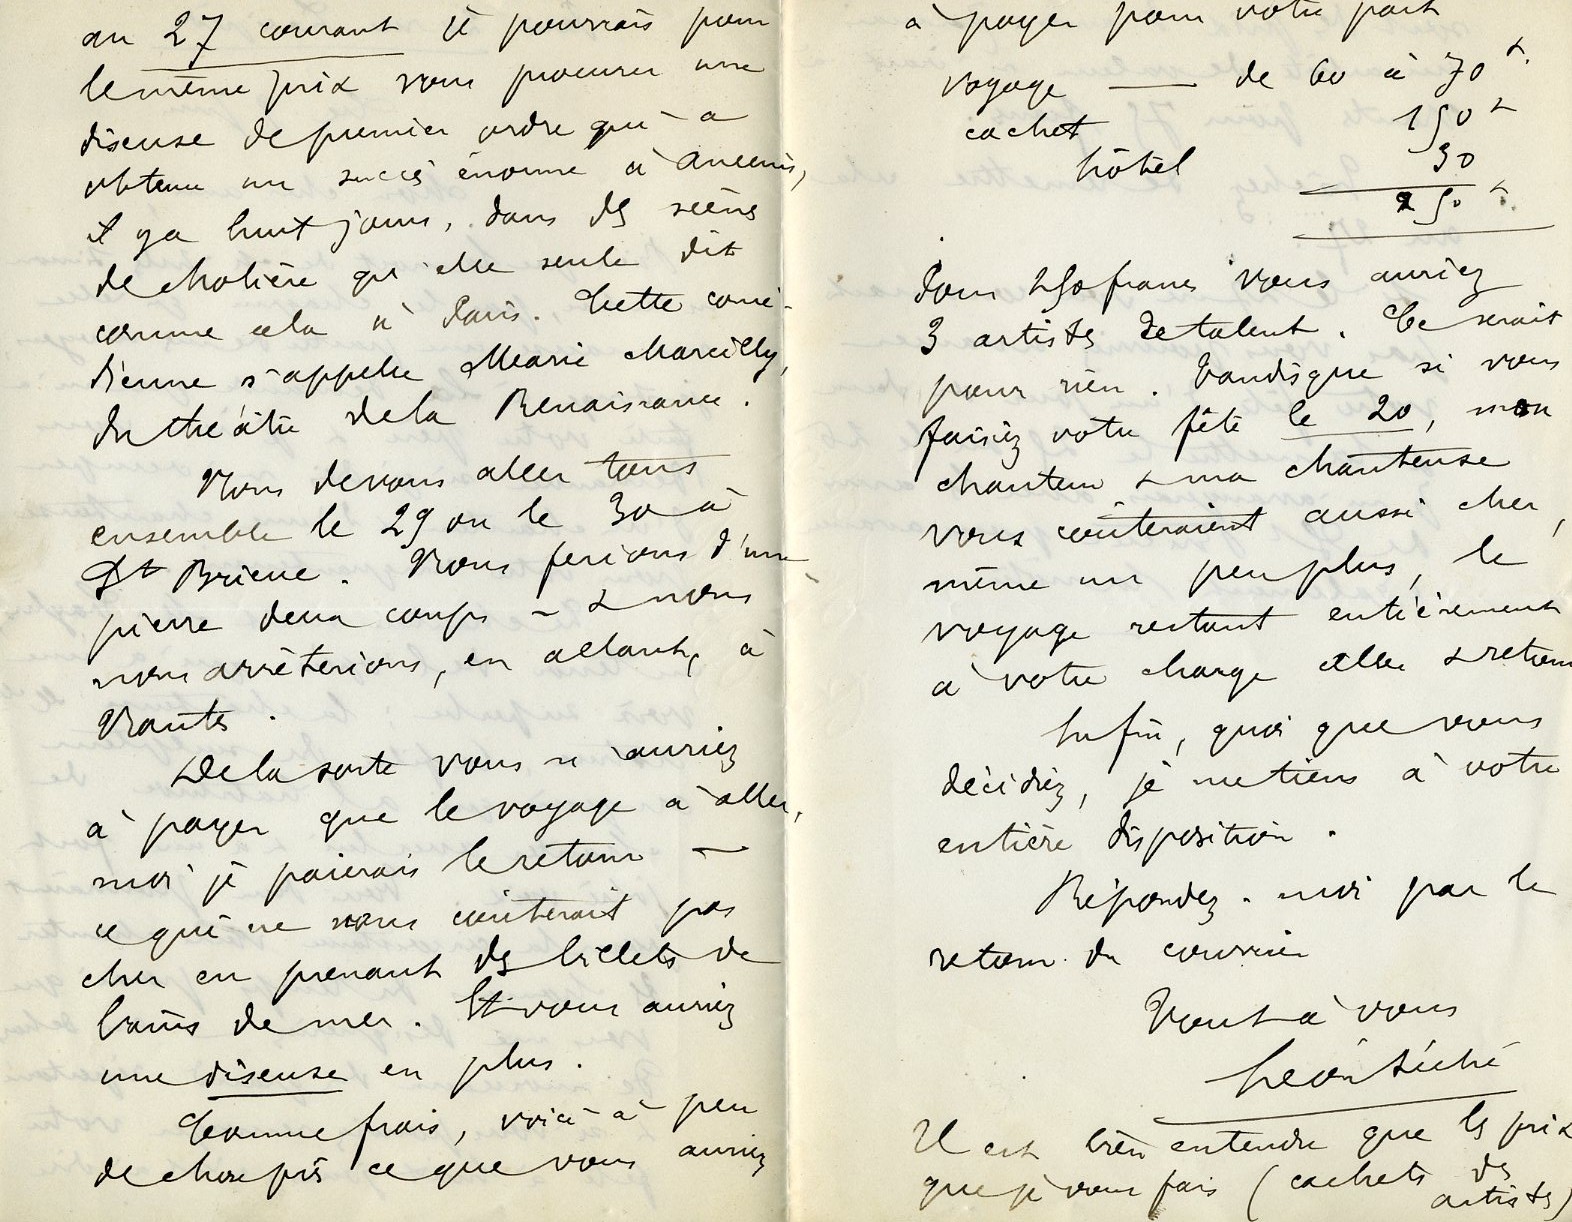 au 27 courant je pourrais pour
le même prix vous procurer une
diseuse de premier ordre qui a
obtenu un succès énorme à Ancenis,
il y a huit jours, dans des scènes
de Molière qu'elle seule dit
comme cela à Paris. Cette comé-
dienne s'appelle Marie Marcilly,
du théâtre de la Renaissance.
Nous devons aller tous
ensemble le 29 ou le 30 à
St Brieuc. Nous ferions d'une
pierre deux coups - & nous
nous arrêterions, en allant, à
Nantes.
De la sorte vous n'auriez
à payer que le voyage à aller,
moi je paierais le retour —
ce qui ne nous coûterait pas
cher en prenant des billets de
bains de mer. Et vous auriez
une diseuse en plus.
Comme frais, voici à peu
de chose près ce que vous auriez
à payer pour votre part
voyage — de 60 à 70 f.
cachet 150 f
hôtel 30
250 f
Pour 250 francs vous auriez
3 artistes de talent. Ce serait
pour rien. Tandis que si vous
faisiez votre fête le 20, mon
chanteur & ma chanteuse
vous coûteraient aussi cher,
même un peu plus, le
voyage restant entièrement
à votre charge aller & retour
Enfin, quoi que vous
décidiez, je me tiens à votre
entière disposition.
Répondez-moi par le
retour du courrier
Tout à vous
Léon Séché
Il est bien entendu que les prix
que je vous fais (cachets des
artistes)